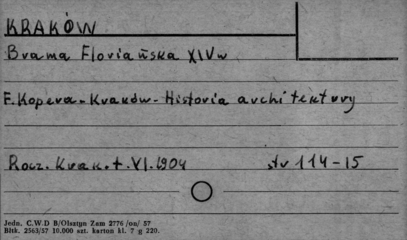 KRAKÓW
Brama Floriańska XIVw
F. Kopera - Kraków - Historia architektury
Rocz. Krak. t. VI. 1904 str 114-15
Jedn. C.W.D B/Olsztyn Zam 2776 /on/ 57
Bltk. 2563/57 10.000 szt. karton kl. 7 g 220.